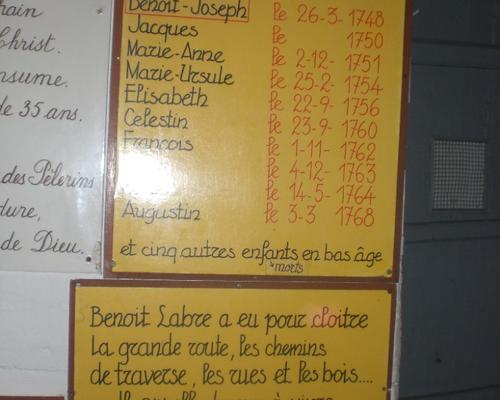 hain
Christ.
nsume.
de 35 ans.
des Pèlerins
dure,
de Dieu.
Benoît-Joseph le 26-3-1748
Jacques le 1750
Marie-Anne le 2-12-1751
Marie-Ursule le 25-2-1754
Elisabeth le 22-9-1756
Célestin le 23-9-1760
François le 1-11-1762
le 4-12-1763
le 14-5-1764
Augustin le 3-3 1768
et cinq autres enfants en bas âge
morts
Benoit Labre a eu pour cloitre
la grande route, les chemins
de traverse, les rues et les bois....